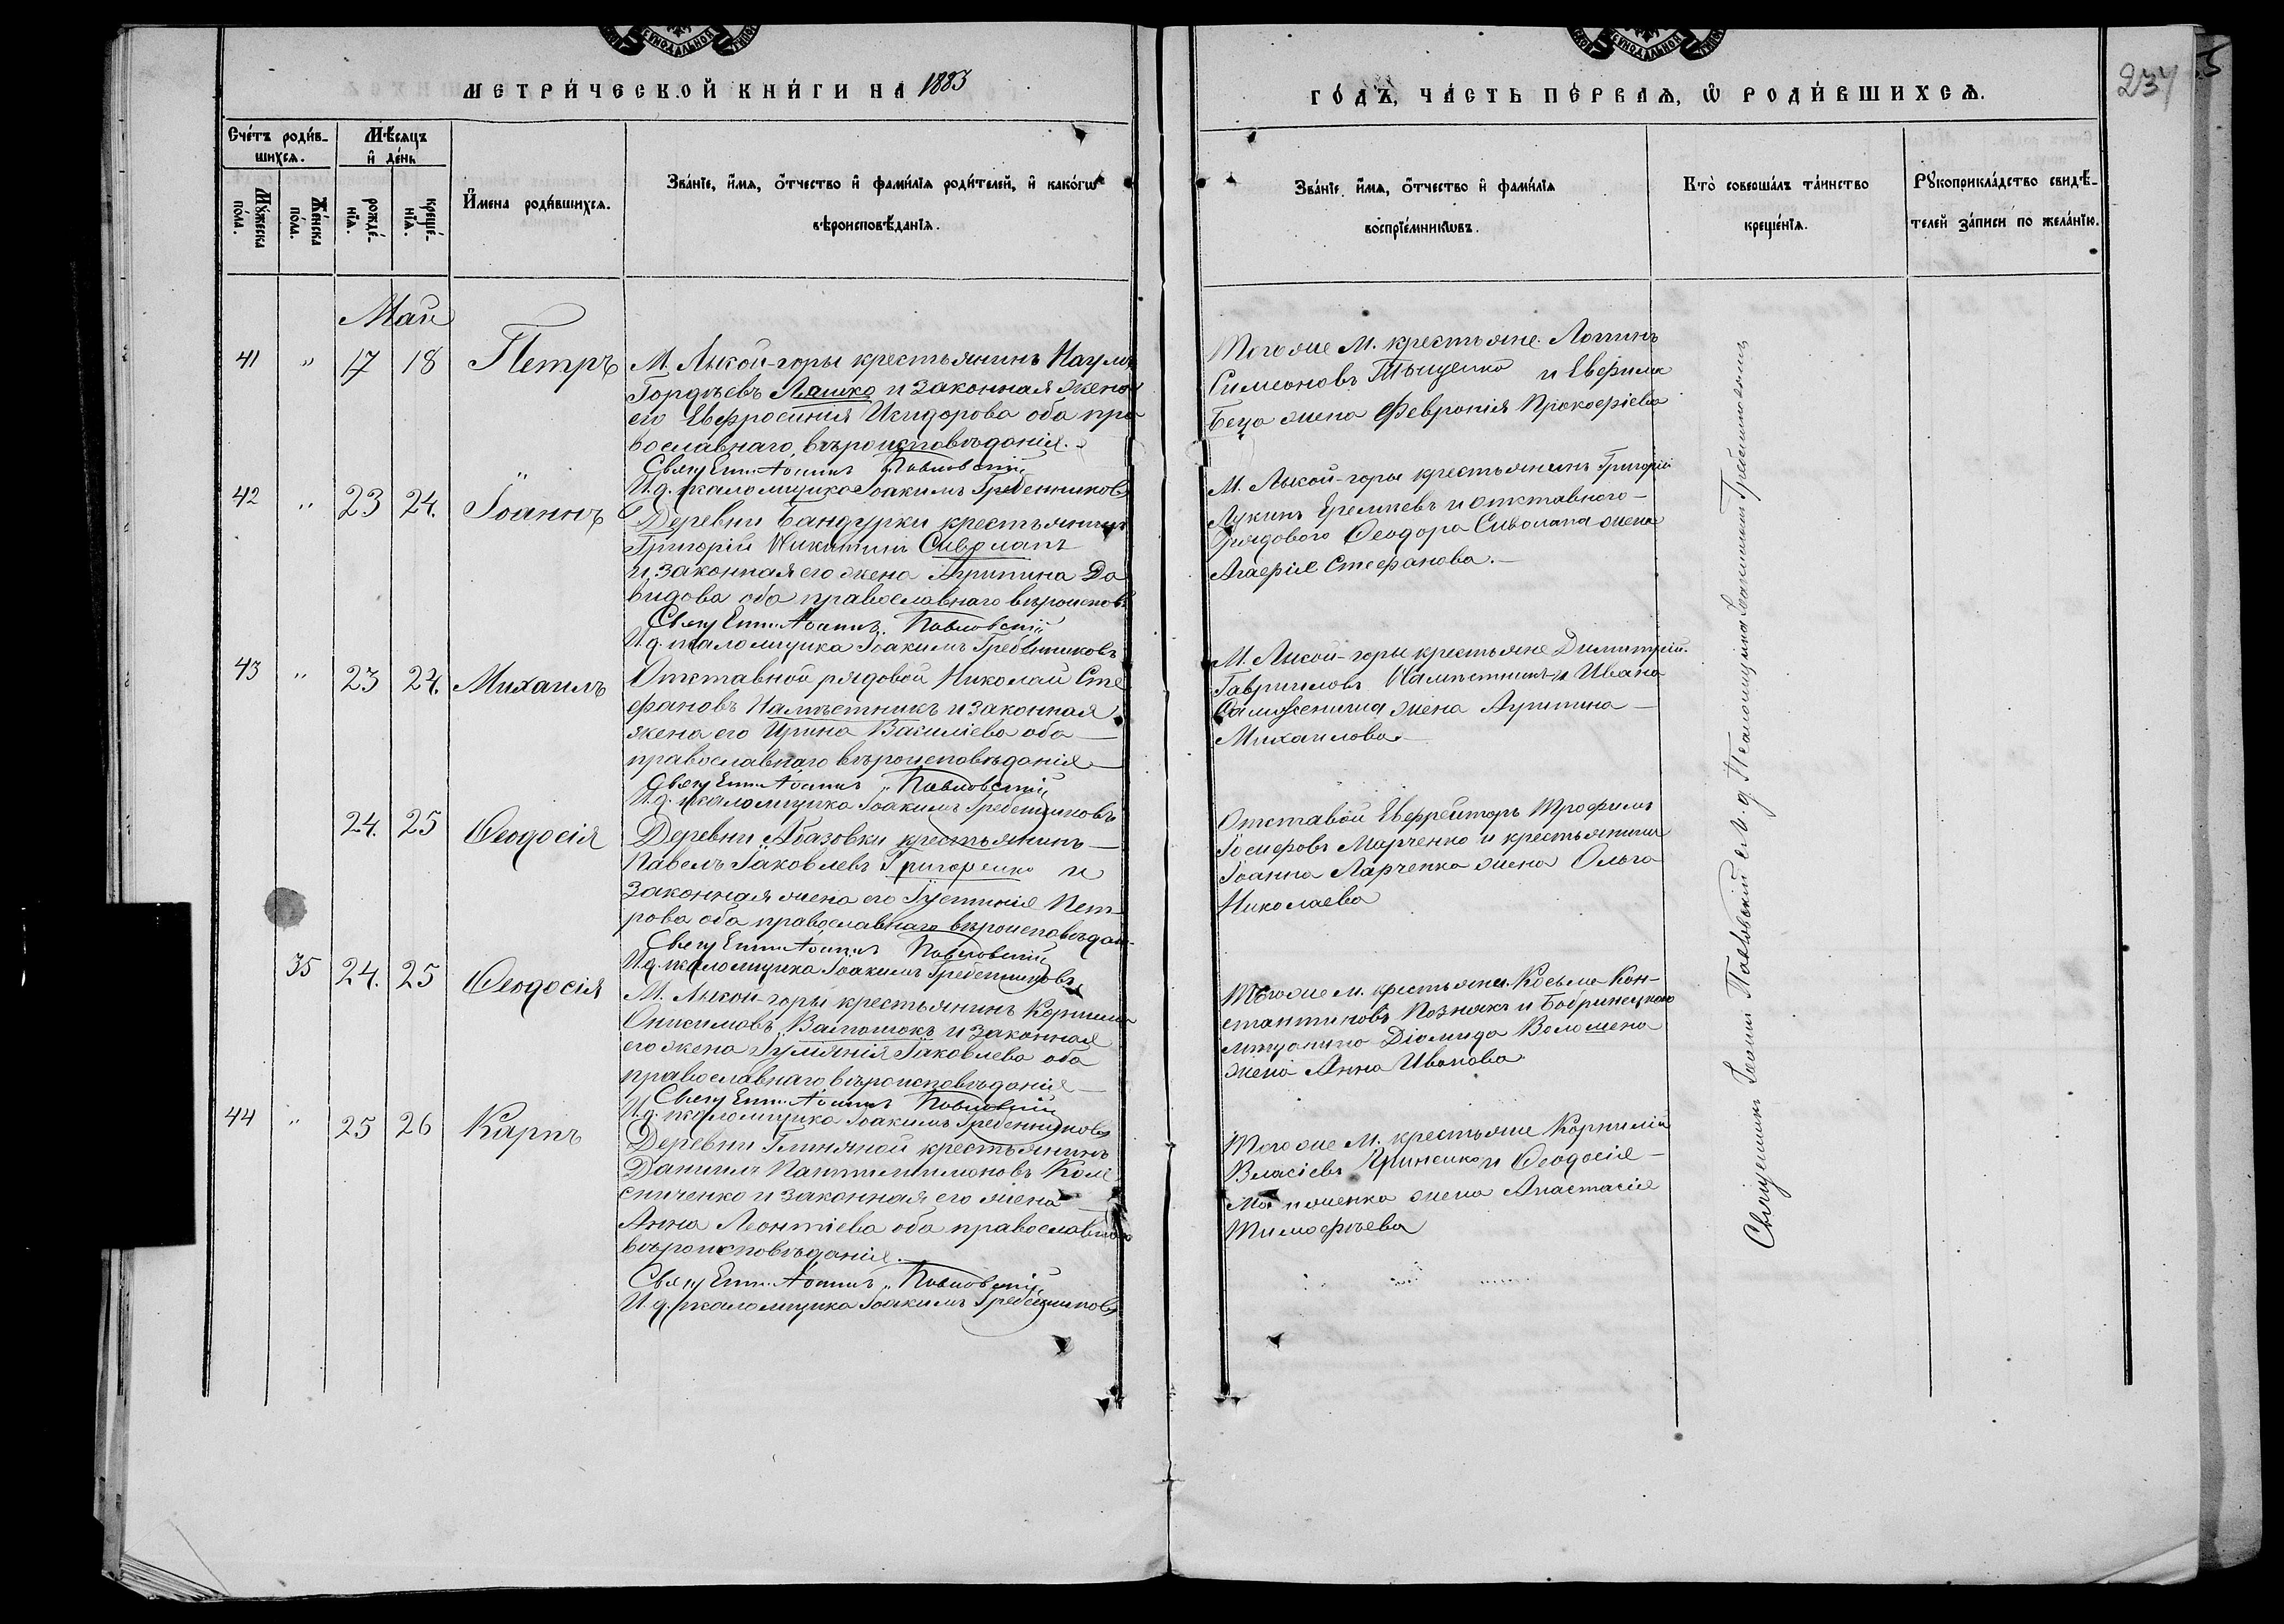 МЕТРИ́ЧЕСКОЙ КНИ́ГИ НА 1883
ГО́ДЪ, ЧА́СТЬ ПЕ́РВАѦ, Ѡ҆ РОДИ́ВШИХСѦ.
237
Сче́тъ роди́вшихсѧ.
Мꙋ́жеска по́ла.
Же́нска по́ла.
Мѣ́сѧцъ и҆ де́нь
рожде́нїѧ.
креще́нїѧ.
И҆́мена роди́вшихсѧ.
Зва́нїе, и҆́мѧ, ѻ҆́тчество и҆ фами́лїѧ роди́телей, и҆ како́гѡ
вѣроисповѣ́данїѧ.
Зва́нїе, и҆́мѧ, ѻ҆́тчество и҆ фами́лїѧ
воспрїе́мникѡвъ.
Кто̀ соверша́лъ та́инство
креще́нїѧ.
Рꙋкоприкла́дство свидѣ́-
телей за́писи по жела́нїю.
Май
41 " 17 18 Петръ
М. Лысой-горы крестьянинъ Наумъ
Гордѣевъ Ляшко и законная жена
его Евфросинія Исидорова оба пра
вославнаго вѣроисповѣданія.
Свящ Іоаннъ Павловскій
И.д. псаломщика Іоакимъ Гребенниковъ
Тогоже М. крестьяне Логинъ
Симеоновъ Тыщенко и Евфима
Беца жена Февронія Прокофіева
42 " 23 24. Іоаннъ
Деревни Бандурки крестьянинъ
Григорій Никитинъ Сиволапъ
и законная его жена Агрипина Да
видова оба православнаго вѣроисповѣ
Свящ Іоаннъ Павловскій
И.д. псаломщика Іоакимъ Гребенниковъ
М. Лысой-горы крестьянинъ Григорій
Лукинъ Еремѣевъ и отставного
рядового Ѳеодора Сиволапа жена
Агафія Стефанова.
43 " 23 24. Михаилъ
Отставной рядовой Николай Сте
фановъ Намѣстникъ и законная
жена его Ирина Василіева оба
православнаго вѣроисповѣданія
Свящ Іоаннъ Павловскій
И.д. псаломщика Іоакимъ Гребенниковъ
М. Лысой-горы крестьяне Димитрій
Гавриловъ Намѣстникъ и Ивана
жена Агрипина
Михаилова
24. 25 Ѳеодосія
Деревни Абазовки крестьянинъ
Павелъ Іаковлевъ Григоренко и
законная жена его Іустинія Пет
рова оба православнаго вѣроисповѣдан
Свящ Іоаннъ Павловскій
И.д. псаломщика Іоакимъ Гребенниковъ
Отставой Евфрейторъ Трофимъ
Іосифовъ Марченко и крестьянина
Іоанна Ларченка жена Ольга
Николаева
35 24. 25 Ѳеодосія
М. Лысой-горы крестьянинъ Корнилій
Онисимовъ и законная
его жена Іуліанія Іаковлева оба
православнаго вѣроисповѣданія
Свящ Іоаннъ Павловскій
И.д. псаломщика Іоакимъ Гребенниковъ
Тогоже м. крестьяне Косьма Кон-
стантиновъ Познякъ и Бобринецкаго
мѣщанина Діомида Волошена
жена Анна Иванова
44 " 25 26 Карпъ
Деревни Глиняной крестьянинъ
Даніилъ Пантилимоновъ Коле
сниченко и законная его жена
Анна Леонтіева оба православнаго
вѣроисповѣданія.
Свящ Іоаннъ Павловскій
И.д. псаломщика Іоакимъ Гребенниковъ
Тогоже М. крестьяне Корнилій
Власіевъ Гриненко и Ѳеодосія
жена Анастасія
Тимофѣева
Священникъ Іоаннъ Павловскій съ И. д. Псаломщика Іоакимомъ Гребенниковымъ